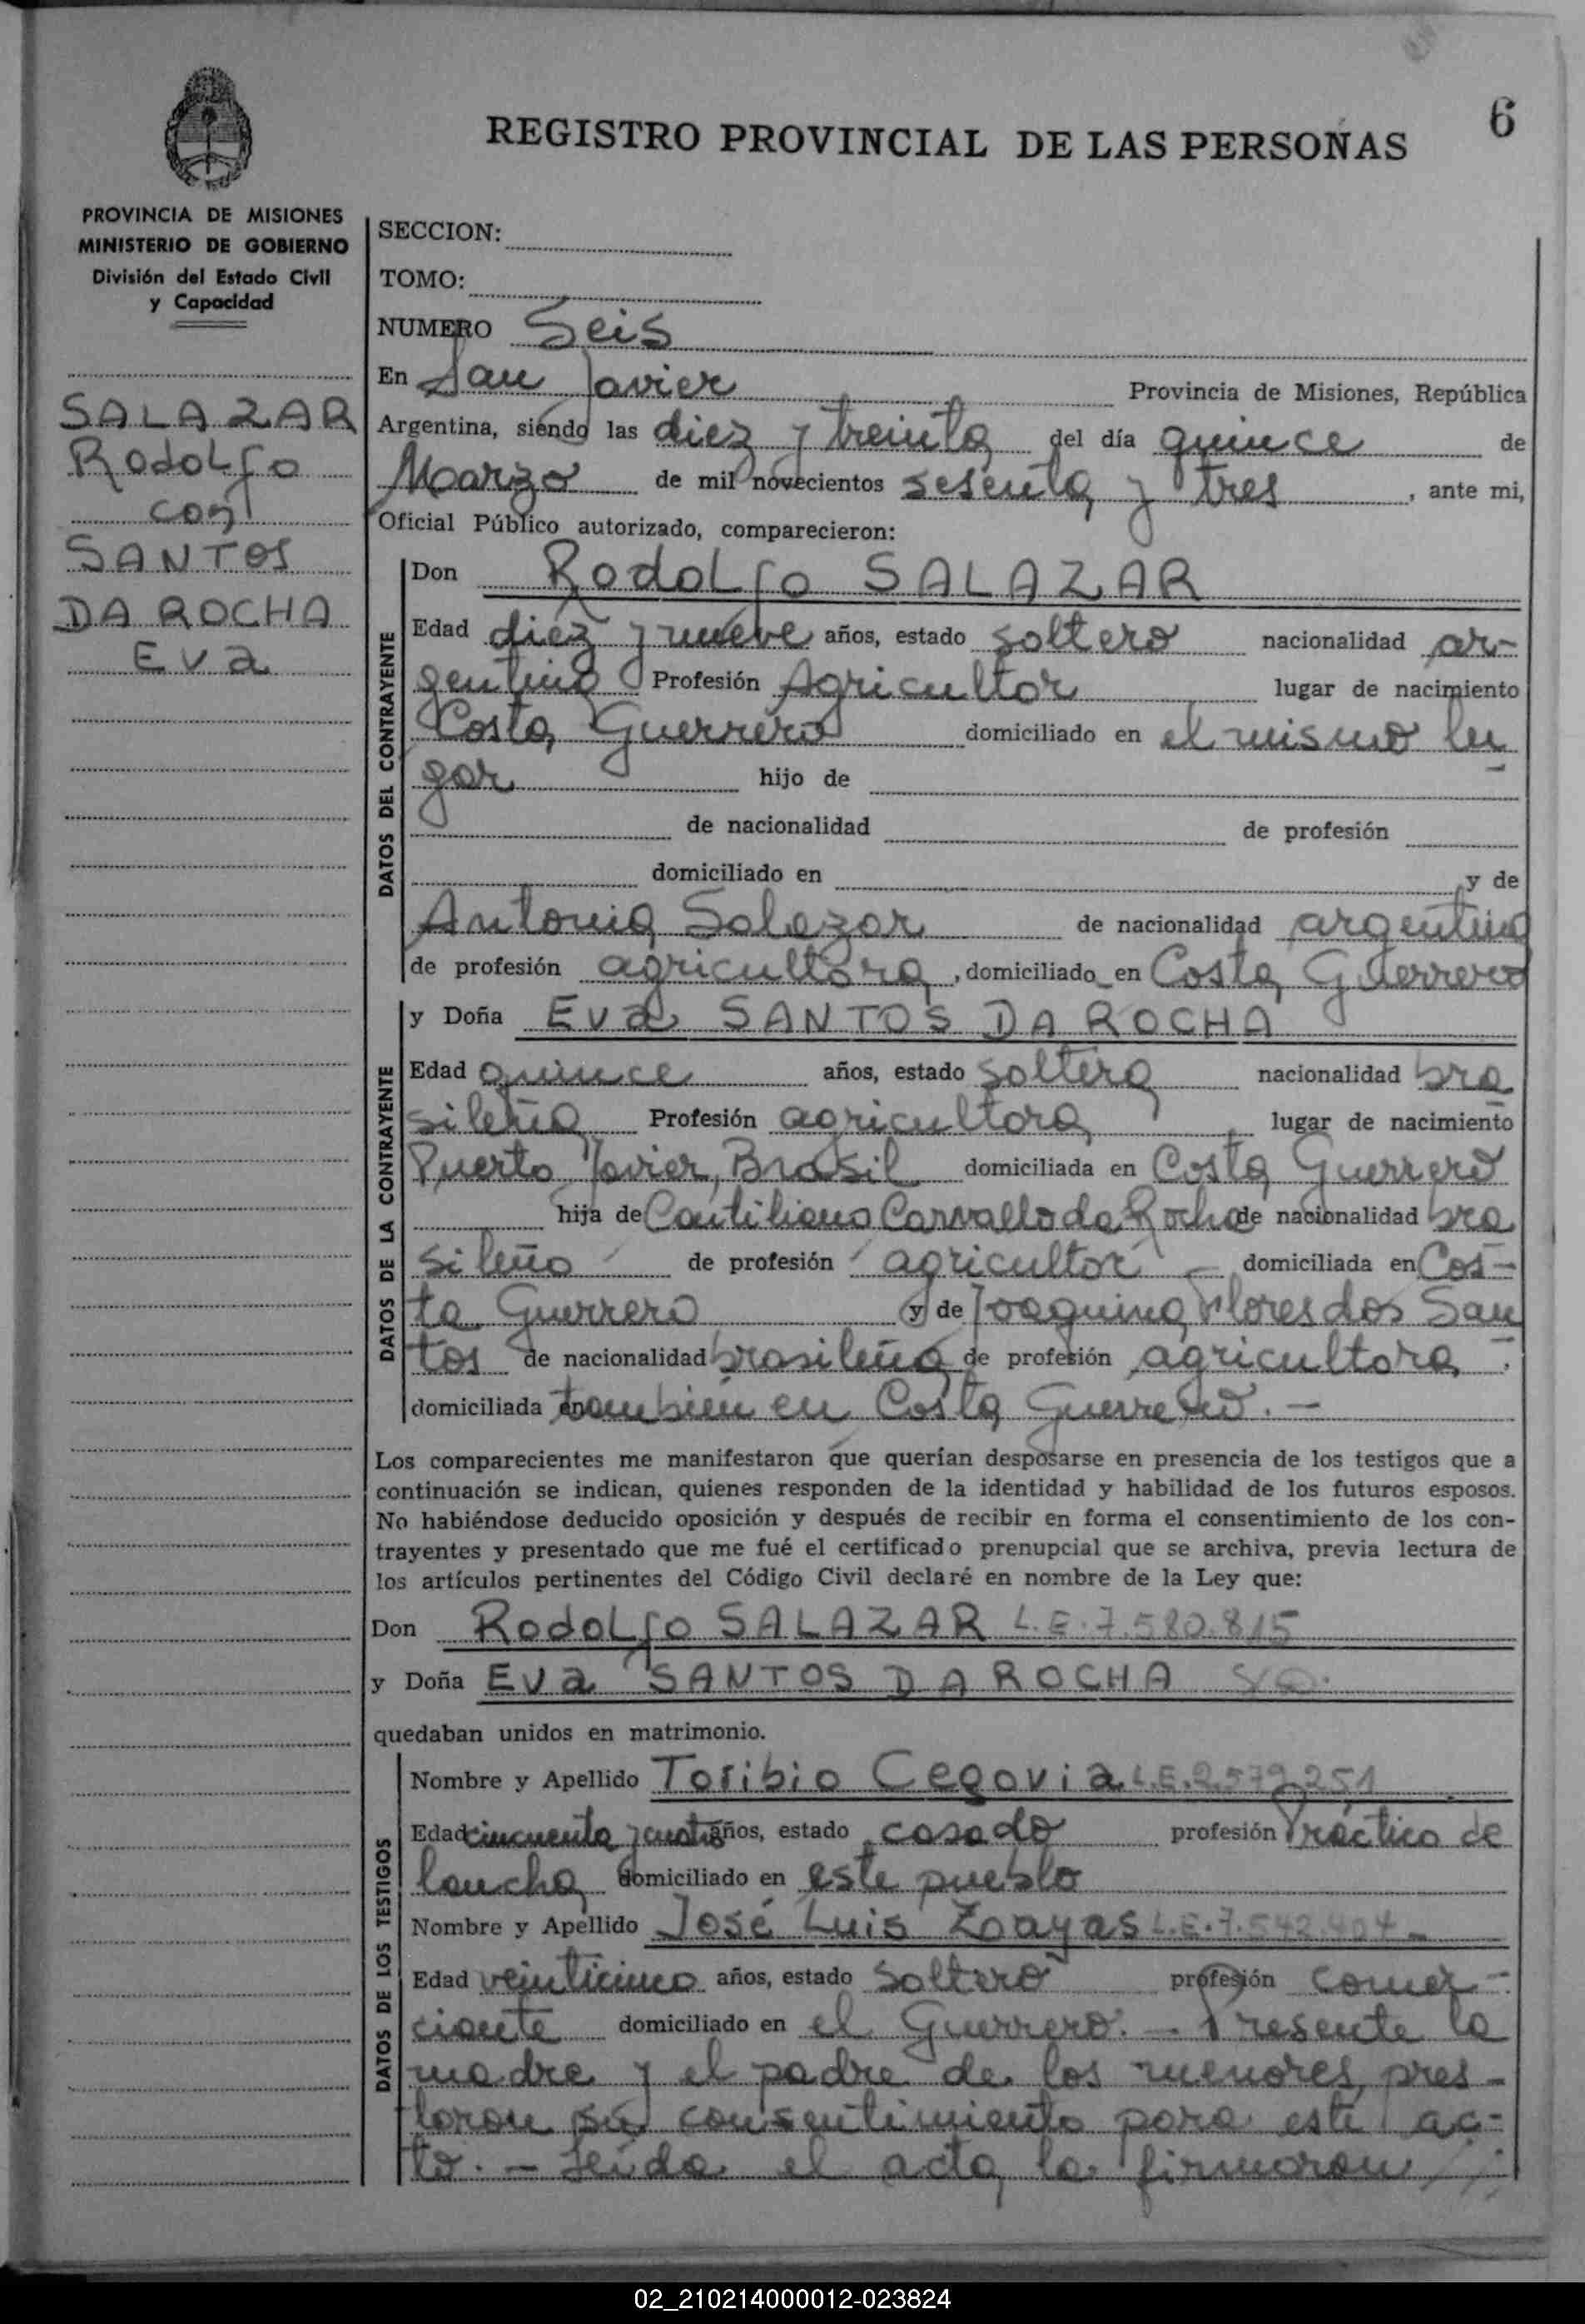 6
REGISTRO PROVINCIAL DE LAS PERSONAS
PROVINCIA DE MISIONES
MINISTERIO DE GOBIERNO
División del Estado Civil
y Capacidad
SALAZAR
Rodolfo
con
SANTOS
DA ROCHA
Eva
SECCION:
TOMO:
NUMERO Seis
En San Javier Provincia de Misiones, República
Argentina, siendo las diez y treinta del día quince de
Marzo de mil novecientos sesenta y tres, ante mi,
Oficial Público autorizado, comparecieron:
DATOS DEL CONTRAYENTE
Don Rodolfo SALAZAR
Edad diez y nueve años, estado soltero nacionalidad ar-
gentino Profesión Agricultor lugar de nacimiento
Costa Guerrero domiciliado en el mismo lu
gar hijo de
de nacionalidad de profesión
domiciliado en y de
Antonia Salazar de nacionalidad argentina
de profesión agricultora, domiciliado en Costa Guerrero
DATOS DE LA CONTRAYENTE
y Doña Eva SANTOS DA ROCHA
Edad quince años, estado soltera nacionalidad bra
sileña Profesión agricultora lugar de nacimiento
Puerto Javier, Brasil domiciliada en Costa Guerrero
hija de Cantiliano Carvallo da Rocha de nacionalidad bra
sileño de profesión agricultor domiciliada en Cos-
ta Guerrero y de Joaquina Flores dos San
tos de nacionalidad brasileña de profesión agricultora,
domiciliada en también en Costa Guerrero. -
Los comparecientes me manifestaron que querían desposarse en presencia de los testigos que a
continuación se indican, quienes responden de la identidad y habilidad de los futuros esposos.
No habiéndose deducido oposición y después de recibir en forma el consentimiento de los con-
trayentes y presentado que me fué el certificado prenupcial que se archiva, previa lectura de
los artículos pertinentes del Código Civil declaré en nombre de la Ley que:
Don Rodolfo SALAZAR L.E.7.580.815
y Doña Eva SANTOS DA ROCHA
quedaban unidos en matrimonio.
DATOS DE LOS TESTIGOS
Nombre y Apellido Toribio Cegovia L.E.2.579.251
Edad cincuenta y cuatro años, estado casado profesión Práctico de
lancha domiciliado en este pueblo
Nombre y Apellido José Luis Zoayas L.E.7.542.404
Edad veinticinco años, estado soltero profesión comer-
ciante domiciliado en el Guerrero. - Presente la
madre y el padre de los menores, pres-
taron su consentimiento para este ac-
to. - Leída el acta, la firmaron
02_210214000012-023824